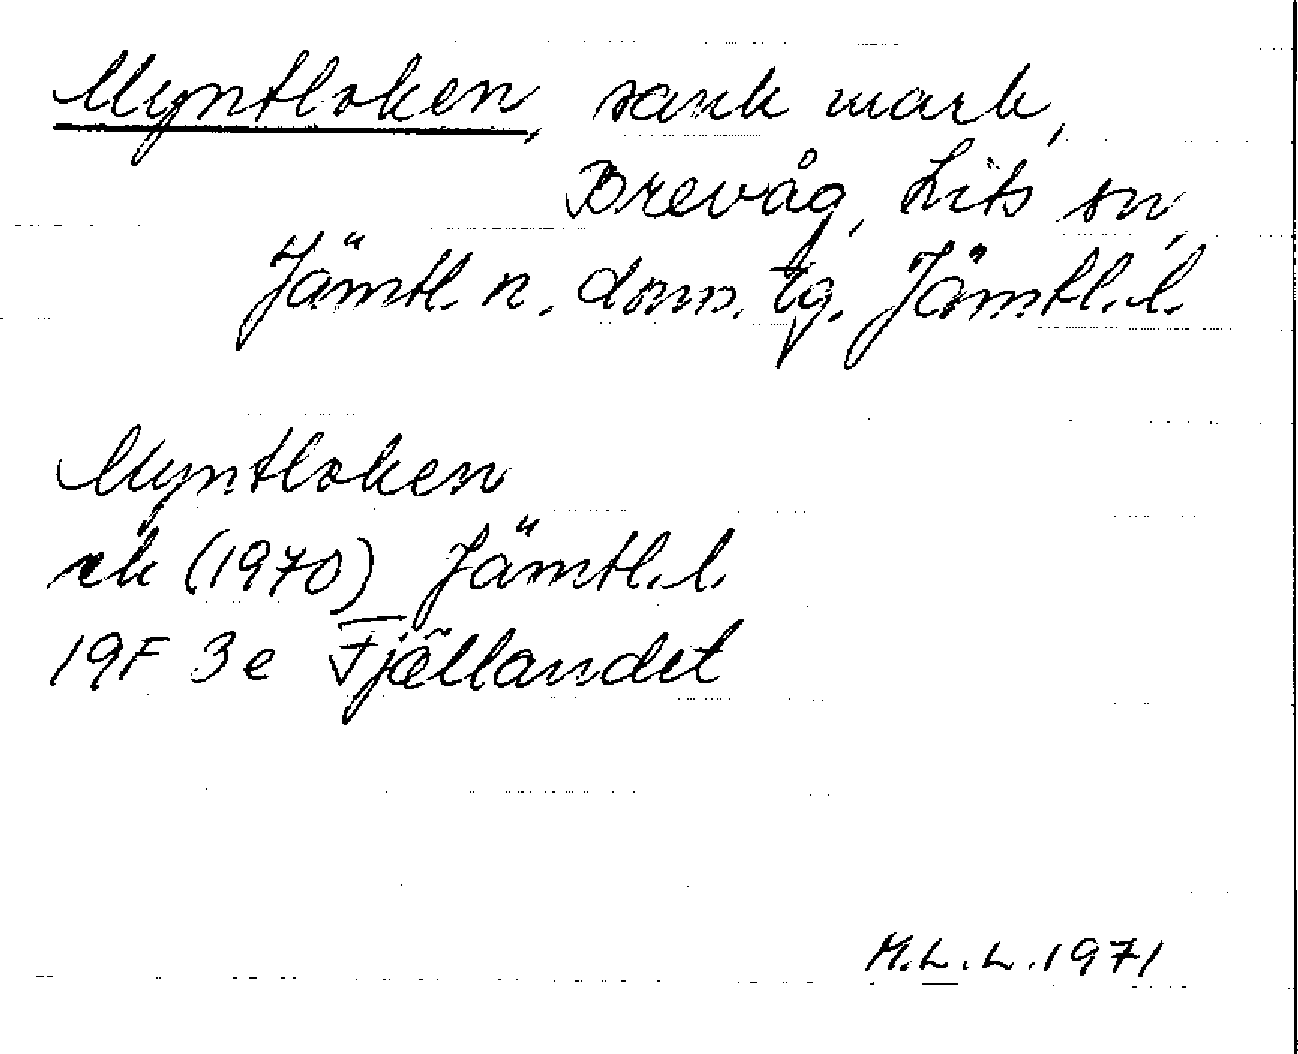 Myntloken, sank mark,
Brevåg, Lits sn,
Jämtl. n. doms. tg. Jämtl. l.
Myntloken
ek (1970) Jämtl. l.
19F 3e Fjällandet
M.L.L. 1971